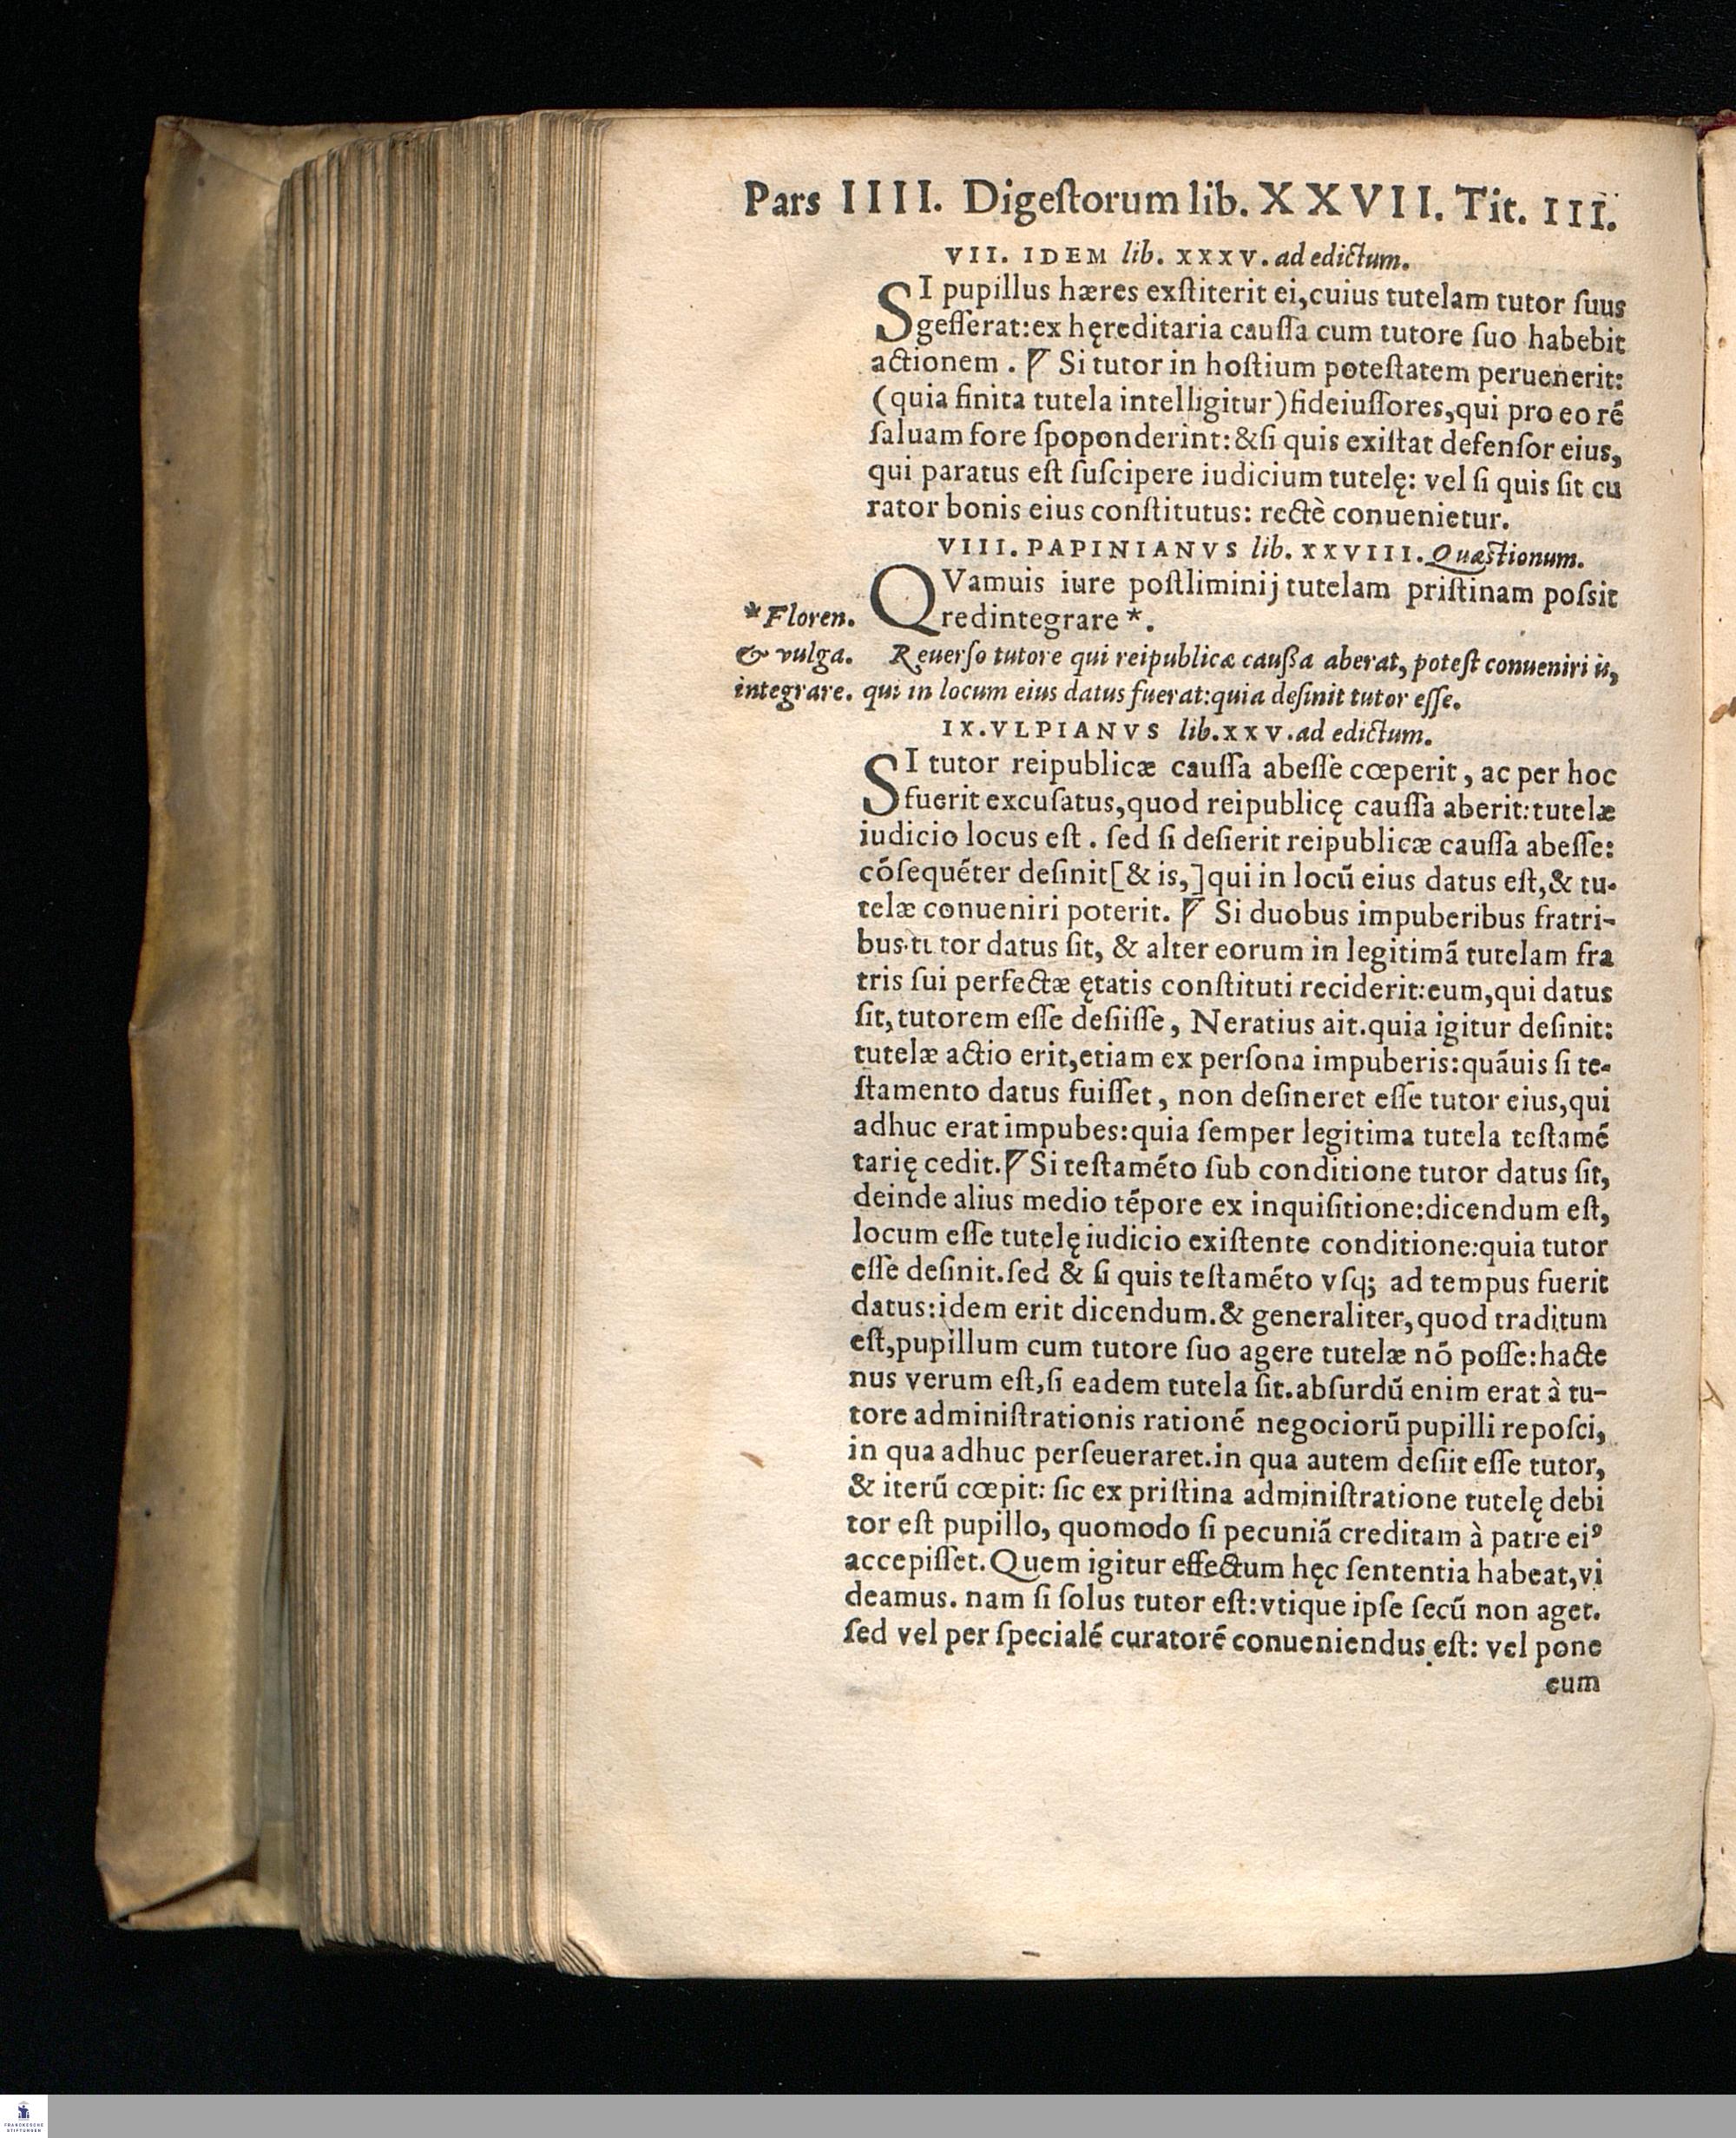 Pars IIII. Digeſtorum lib. XXVII. Tit. III.
VII. IDEM lib. XXXV. ad edictum.
SI pupillus hæres exſtiterit ei,cuius tutelam tutor ſuus
geſſerat:ex hęreditaria cauſſa cum tutore ſuo habebit
actionem . ¶ Si tutor in hoſtium poteſtatem peruenerit:
(quia finita tutela intelligitur)fideiuſſores,qui pro eo ré
ſaluam fore ſpoponderint:&ſi quis exiſtat defenſor eius,
qui paratus eſt ſuſcipere iudicium tutelę: vel ſi quis ſit cu
rator bonis eius conſtitutus: rectè conuenietur.
VIII. PAPINIANVS lib. XXVIII. Quæſtionum.
QVamuis iure poſtliminij tutelam priſtinam poſsit
redintegrare *.
* Floren.
& vulga.
integrare.
Reuerſo tutore qui reipublicæ cauſſa aberat, poteſt conueniri is,
qui in locum eius datus fuerat:quia deſinit tutor eſſe.
IX. VLPIANVS lib. XXV. ad edictum.
SI tutor reipublicæ cauſſa abeſſe cœperit, ac per hoc
fuerit excuſatus,quod reipublicę cauſſa aberit:tutelæ
iudicio locus eſt . ſed ſi deſierit reipublicæ cauſſa abeſſe:
cóſequéter deſinit[& is,]qui in locũ eius datus eſt,& tu-
telæ conueniri poterit. ¶ Si duobus impuberibus fratri-
bus tutor datus ſit, & alter eorum in legitimã tutelam fra
tris ſui perfectæ ętatis conſtituti reciderit:eum,qui datus
ſit,tutorem eſſe deſiiſſe, Neratius ait.quia igitur deſinit:
tutelæ actio erit,etiam ex perſona impuberis:quãuis ſi te-
ſtamento datus fuiſſet, non deſineret eſſe tutor eius,qui
adhuc erat impubes:quia ſemper legitima tutela teſtamé
tarię cedit.¶ Si teſtaméto ſub conditione tutor datus ſit,
deinde alius medio tépore ex inquiſitione:dicendum eſt,
locum eſſe tutelę iudicio exiſtente conditione:quia tutor
eſſe deſinit.ſed & ſi quis teſtaméto vſq; ad tempus fuerit
datus:idem erit dicendum.& generaliter,quod traditum
eſt,pupillum cum tutore ſuo agere tutelæ nó poſſe:hacte
nus verum eſt,ſi eadem tutela ſit.abſurdũ enim erat à tu-
tore adminiſtrationis rationé negociorũ pupilli repoſci,
in qua adhuc perſeueraret.in qua autem deſiit eſſe tutor,
& iterũ cœpit: ſic ex priſtina adminiſtratione tutelę debi
tor eſt pupillo, quomodo ſi pecuniã creditam à patre eiꝰ
accepiſſet. Quem igitur effectum hęc ſententia habeat,vi
deamus. nam ſi ſolus tutor eſt:vtique ipſe ſecũ non aget.
ſed vel per ſpecialé curatoré conueniendus eſt: vel pone
eum
FRANCKESCHE
STIFTUNGEN